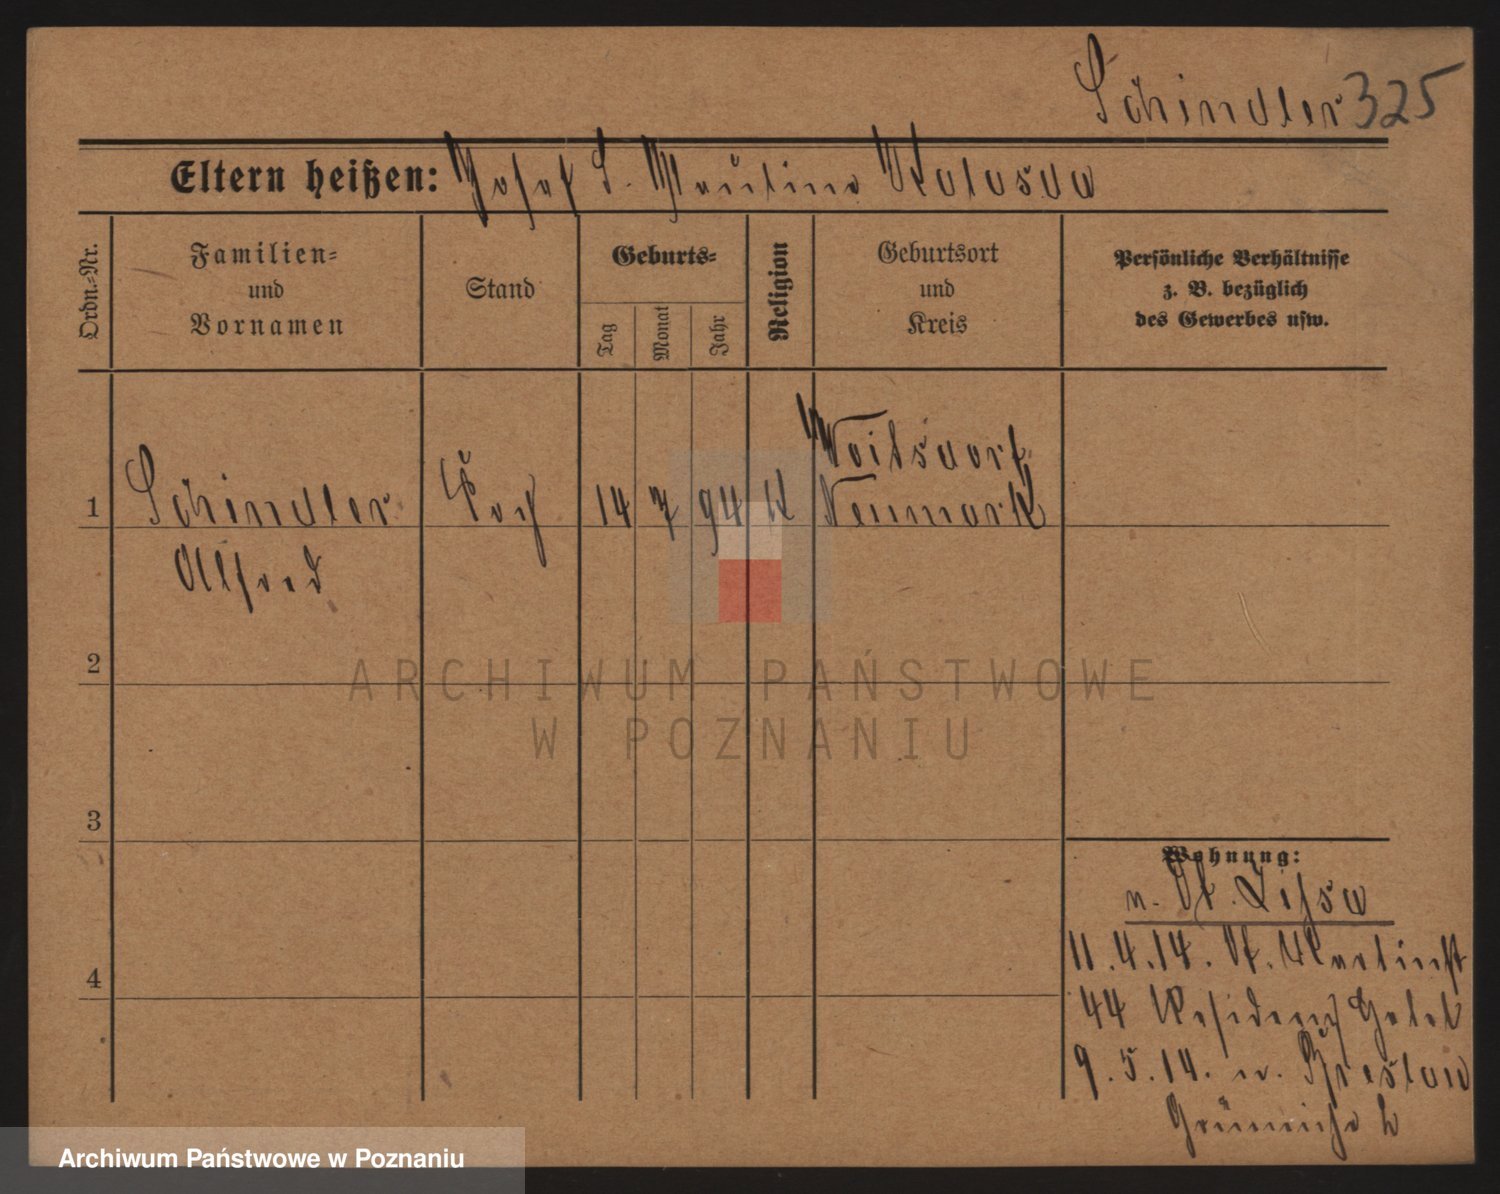 Schindler 325
Eltern heißen: Josef S. Pauline
Ordn.-Nr.
Familien-
und
Vornamen
Stand
Geburts-
Tag
Monat
Jahr
Religion
Geburtsort
und
Kreis
Persönliche Verhältnisse
z. B. bezüglich
des Gewerbes usw.
Woitsdorf
1 Schindler Koch 14 7 94 K Neumark
Alfred
2
ARCHIWUM PAŃSTWOWE
W POZNANIU
3
Wohnung:
n. Lissa
4
11.4.14. St. Martinstr
44 Residenz Hotel
9.5.14. n. Breslau
Archiwum Państwowe w Poznaniu